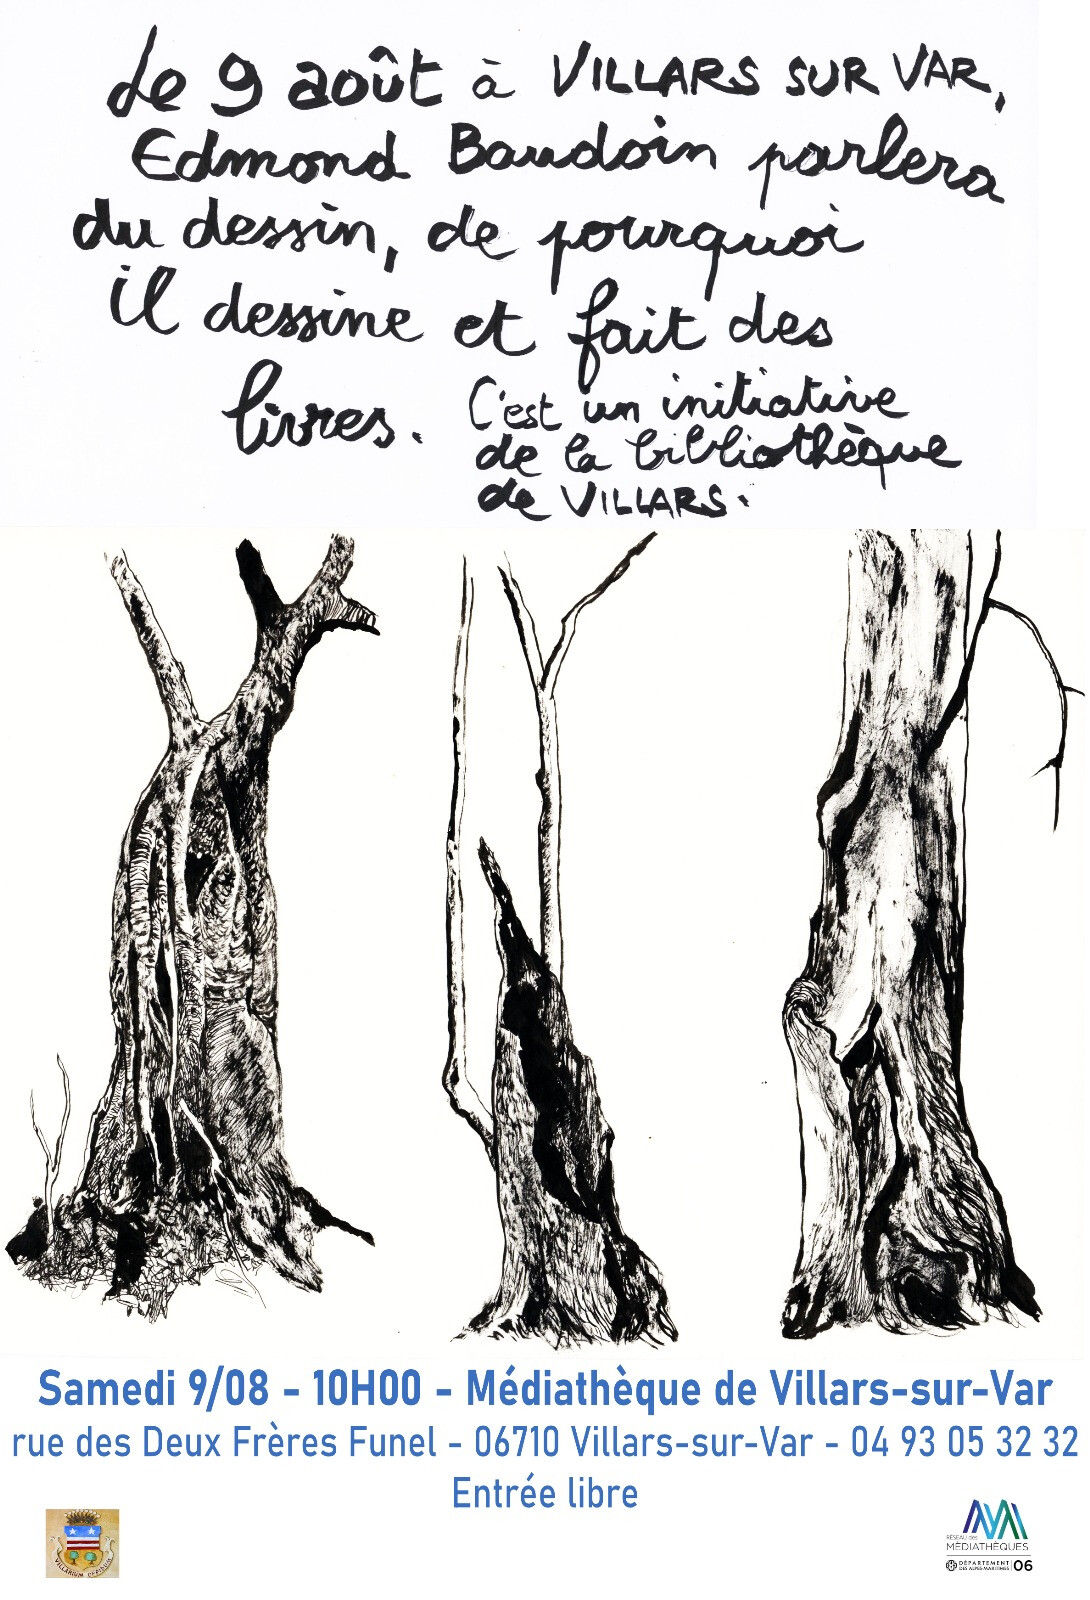 Le 9 août à VILLARS SUR VAR,
Edmond Baudoin parlera
du dessin, de pourquoi
il dessine et fait des
livres.
C'est un initiative
de la bibliothèque
de VILLARS.
Samedi 9/08 - 10H00 - Médiathèque de Villars-sur-Var
rue des Deux Frères Funel - 06710 Villars-sur-Var - 04 93 05 32 32
Entrée libre
VILLARIUM OPPIDUM
RÉSEAU des
MÉDIATHÈQUES
DÉPARTEMENT
DES ALPES-MARITIMES
06